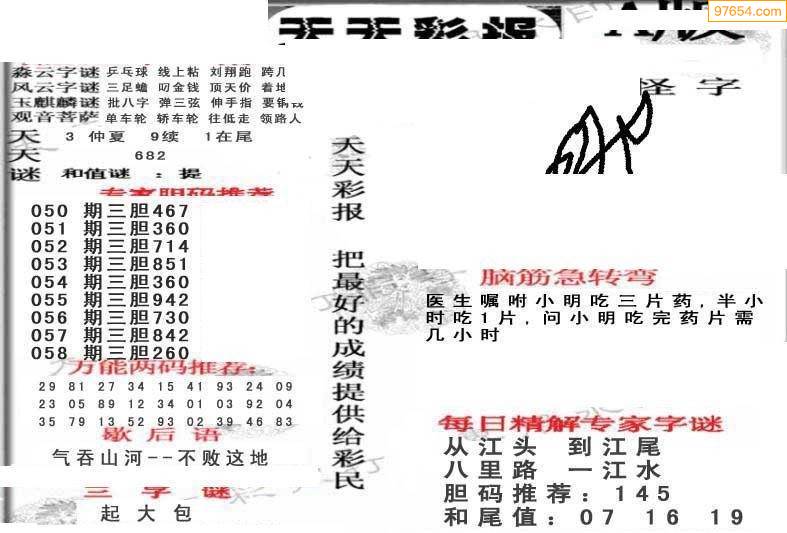 97654.com
天天彩报
A版
森云字谜 乒乓球 线上粘 刘翔跑 跨几
风云字谜 三足蟾 叨金钱 顶天价 着地
玉麒麟谜 批八字 弹三弦 伸手指 要锅
观音菩萨 单车轮 轿车轮 往低走 领路人
天 3 仲夏 9续 1在尾
天 682
谜 和值谜 : 提
专家胆码推荐
050 期三胆467
051 期三胆360
052 期三胆714
053 期三胆851
054 期三胆360
055 期三胆942
056 期三胆730
057 期三胆842
058 期三胆260
万能两码推荐:
29 81 27 34 15 41 93 24 09
23 05 89 12 34 01 03 92 04
35 79 13 52 93 02 39 46 83
歇后语
气吞山河--不败这地
三字谜
起大包
天天彩报 把最好的成绩提供给彩民
怪字
脑筋急转弯
医生嘱咐小明吃三片药,半小
时吃1片,问小明吃完药片需
几小时
每日精解专家字谜
从江头 到江尾
八里路 一江水
胆码推荐:145
和尾值:07 16 19